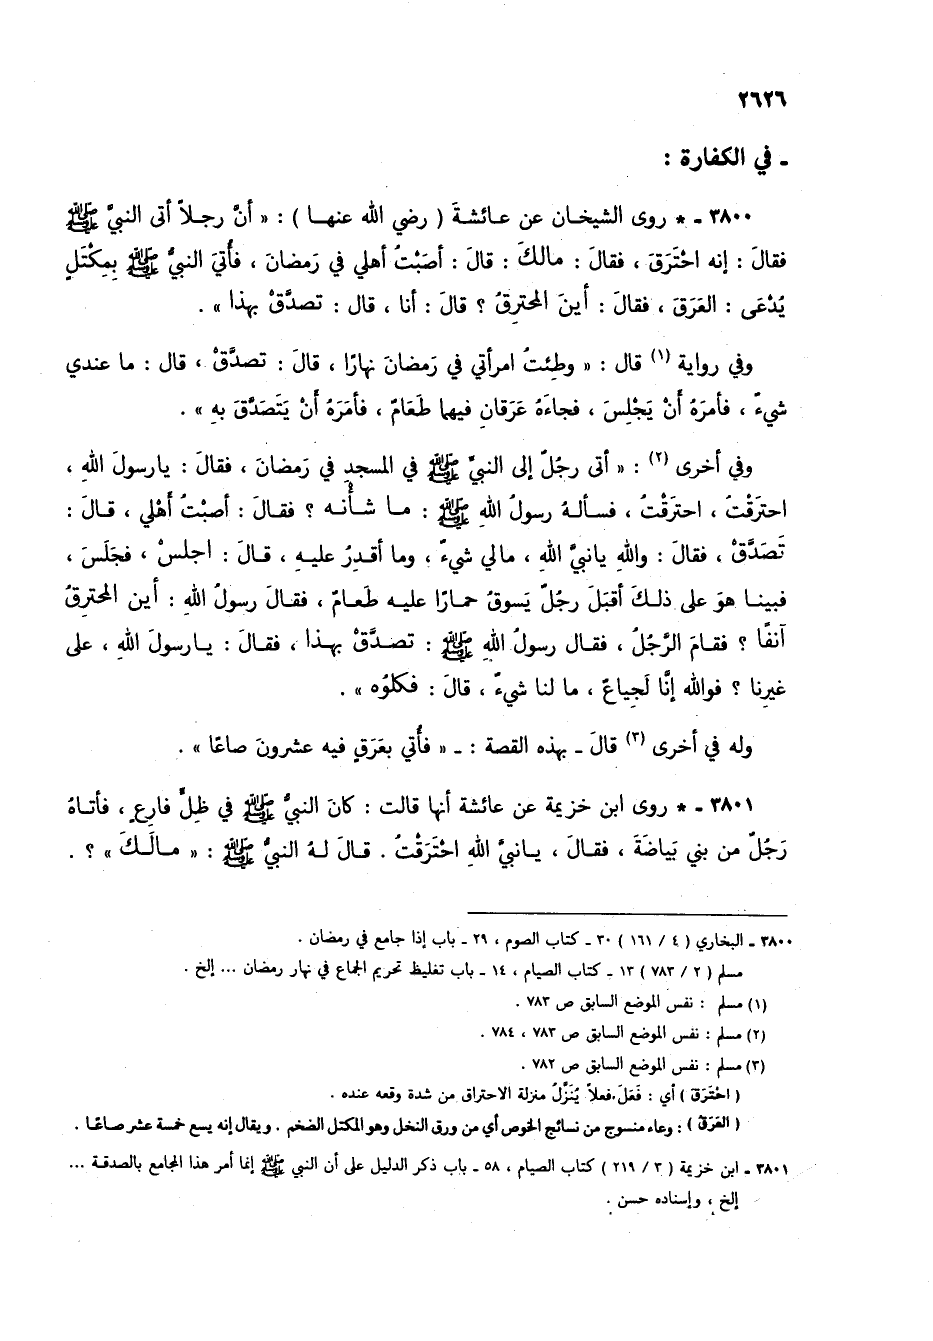 ٢٦٢٦
ـ في الكفارة :
٣٨٠٠ ـ * روى الشيخـان عن عـائشـةَ ( رضي الله عنهـا ) : « أنَّ رجـلاً أتى النبيَّ ﷺ
فقالَ : إنه احْتَرَقَ ، فقالَ : مالكَ : قالَ : أصَبْتُ أهلي في رَمضانَ ، فأُتيَ النبيُّ ﷺ بِمِكْتَلٍ
يُدْعَى : العَرَقَ ، فقالَ : أينَ المحترِقُ ؟ قالَ : أنا ، قال : تصدَّقْ بهذا » .
وفي رواية (١) قال : « وطِئتُ امرأتي في رَمضانَ نهارًا ، قالَ : تصدَّقْ ، قال : ما عندي
شيءٌ ، فأمرَهُ أنْ يَجْلِسَ ، فجاءَهُ عَرَقانِ فيها طَعَامٌ ، فأمَرَهُ أنْ يَتَصَدَّقَ بِهِ » .
وفي أخرى (٢) : « أتى رجُلٌ إلى النبيِّ ﷺ في المسجدِ في رَمضانَ ، فقالَ : يارسولَ اللهِ ،
احترَقْتُ ، احترَقْتُ ، فسـألـهُ رسـولُ اللهِ ﷺ : مـا شـأنـه ؟ فقـالَ : أصبْتُ أَهْلي ، قـالَ :
تَصَدَّقْ ، فقالَ : واللهِ يانبيَّ اللهِ ، مالي شيءٌ ، وما أقدِرُ عليـهِ ، قـالَ : اجلسْ ، فجَلَسَ ،
فبينـا هوَ على ذلـكَ أقبَلَ رجُلٌ يَسوقُ حمـارًا عليـه طَعـامٌ ، فقـالَ رسولُ اللهِ : أين المحترِقُ
آنفًا ؟ فقـامَ الرَّجُلُ ، فقـال رسـولُ اللهِ ﷺ : تصـدَّقْ بهـذا ، فقـالَ : يـارسـولَ اللهِ ، على
غيرِنا ؟ فواللهِ إنَّا لَجِياعٌ ، ما لنا شيءٌ ، قالَ : فكلوُه » .
وله في أخرى (٣) قالَ ـ بهذه القصة : ـ « فأُتي بعَرَقٍ فيه عشرونَ صاعًا » .
٣٨٠١ ـ * روى ابن خزيمة عن عائشة أنها قالت : كانَ النبيُّ ﷺ في ظِلِّ فارِعٍ ، فأتـاهُ
رَجُلٌ من بني بَياضَةَ ، فقالَ ، يـانبيَّ اللهِ احْتَرَقْتُ . قالَ لـهُ النبيُّ ﷺ : « مـالَـكَ » ؟ .
٣٨٠٠ ـ البخاري ( ٤ / ١٦١ ) ٣٠ ـ كتاب الصوم ، ٢٩ ـ باب إذا جامع في رمضان .
مسلم ( ٢ / ٧٨٣ ) ١٣ ـ كتاب الصيام ، ١٤ ـ باب تغليظ تحريم الجماع في نهار رمضان ... إلخ .
(١) مسلم : نفس الموضع السابق ص ٧٨٣ .
(٢) مسلم : نفس الموضع السابق ص ٧٨٣ ، ٧٨٤ .
(٣) مسلم : نفس الموضع السابق ص ٧٨٢ .
( احْتَرَقَ ) أي : فَعَلَ فعلاً يُنَزَّلُ منزلة الاحتراق من شدة وقعه عنده .
( العَرَقُ ) : وعاء منسوج من نسائج الخوص أي من ورق النخل وهو المكتل الضخم . ويقال إنه يسع خمسة عشر صاعًا .
٣٨٠١ ـ ابن خزيمة ( ٣ / ٢١٩ ) كتاب الصيام ، ٥٨ ـ باب ذكر الدليل على أن النبي ﷺ إنما أمر هذا المجامع بالصدقة ...
إلخ ، وإسناده حسن .